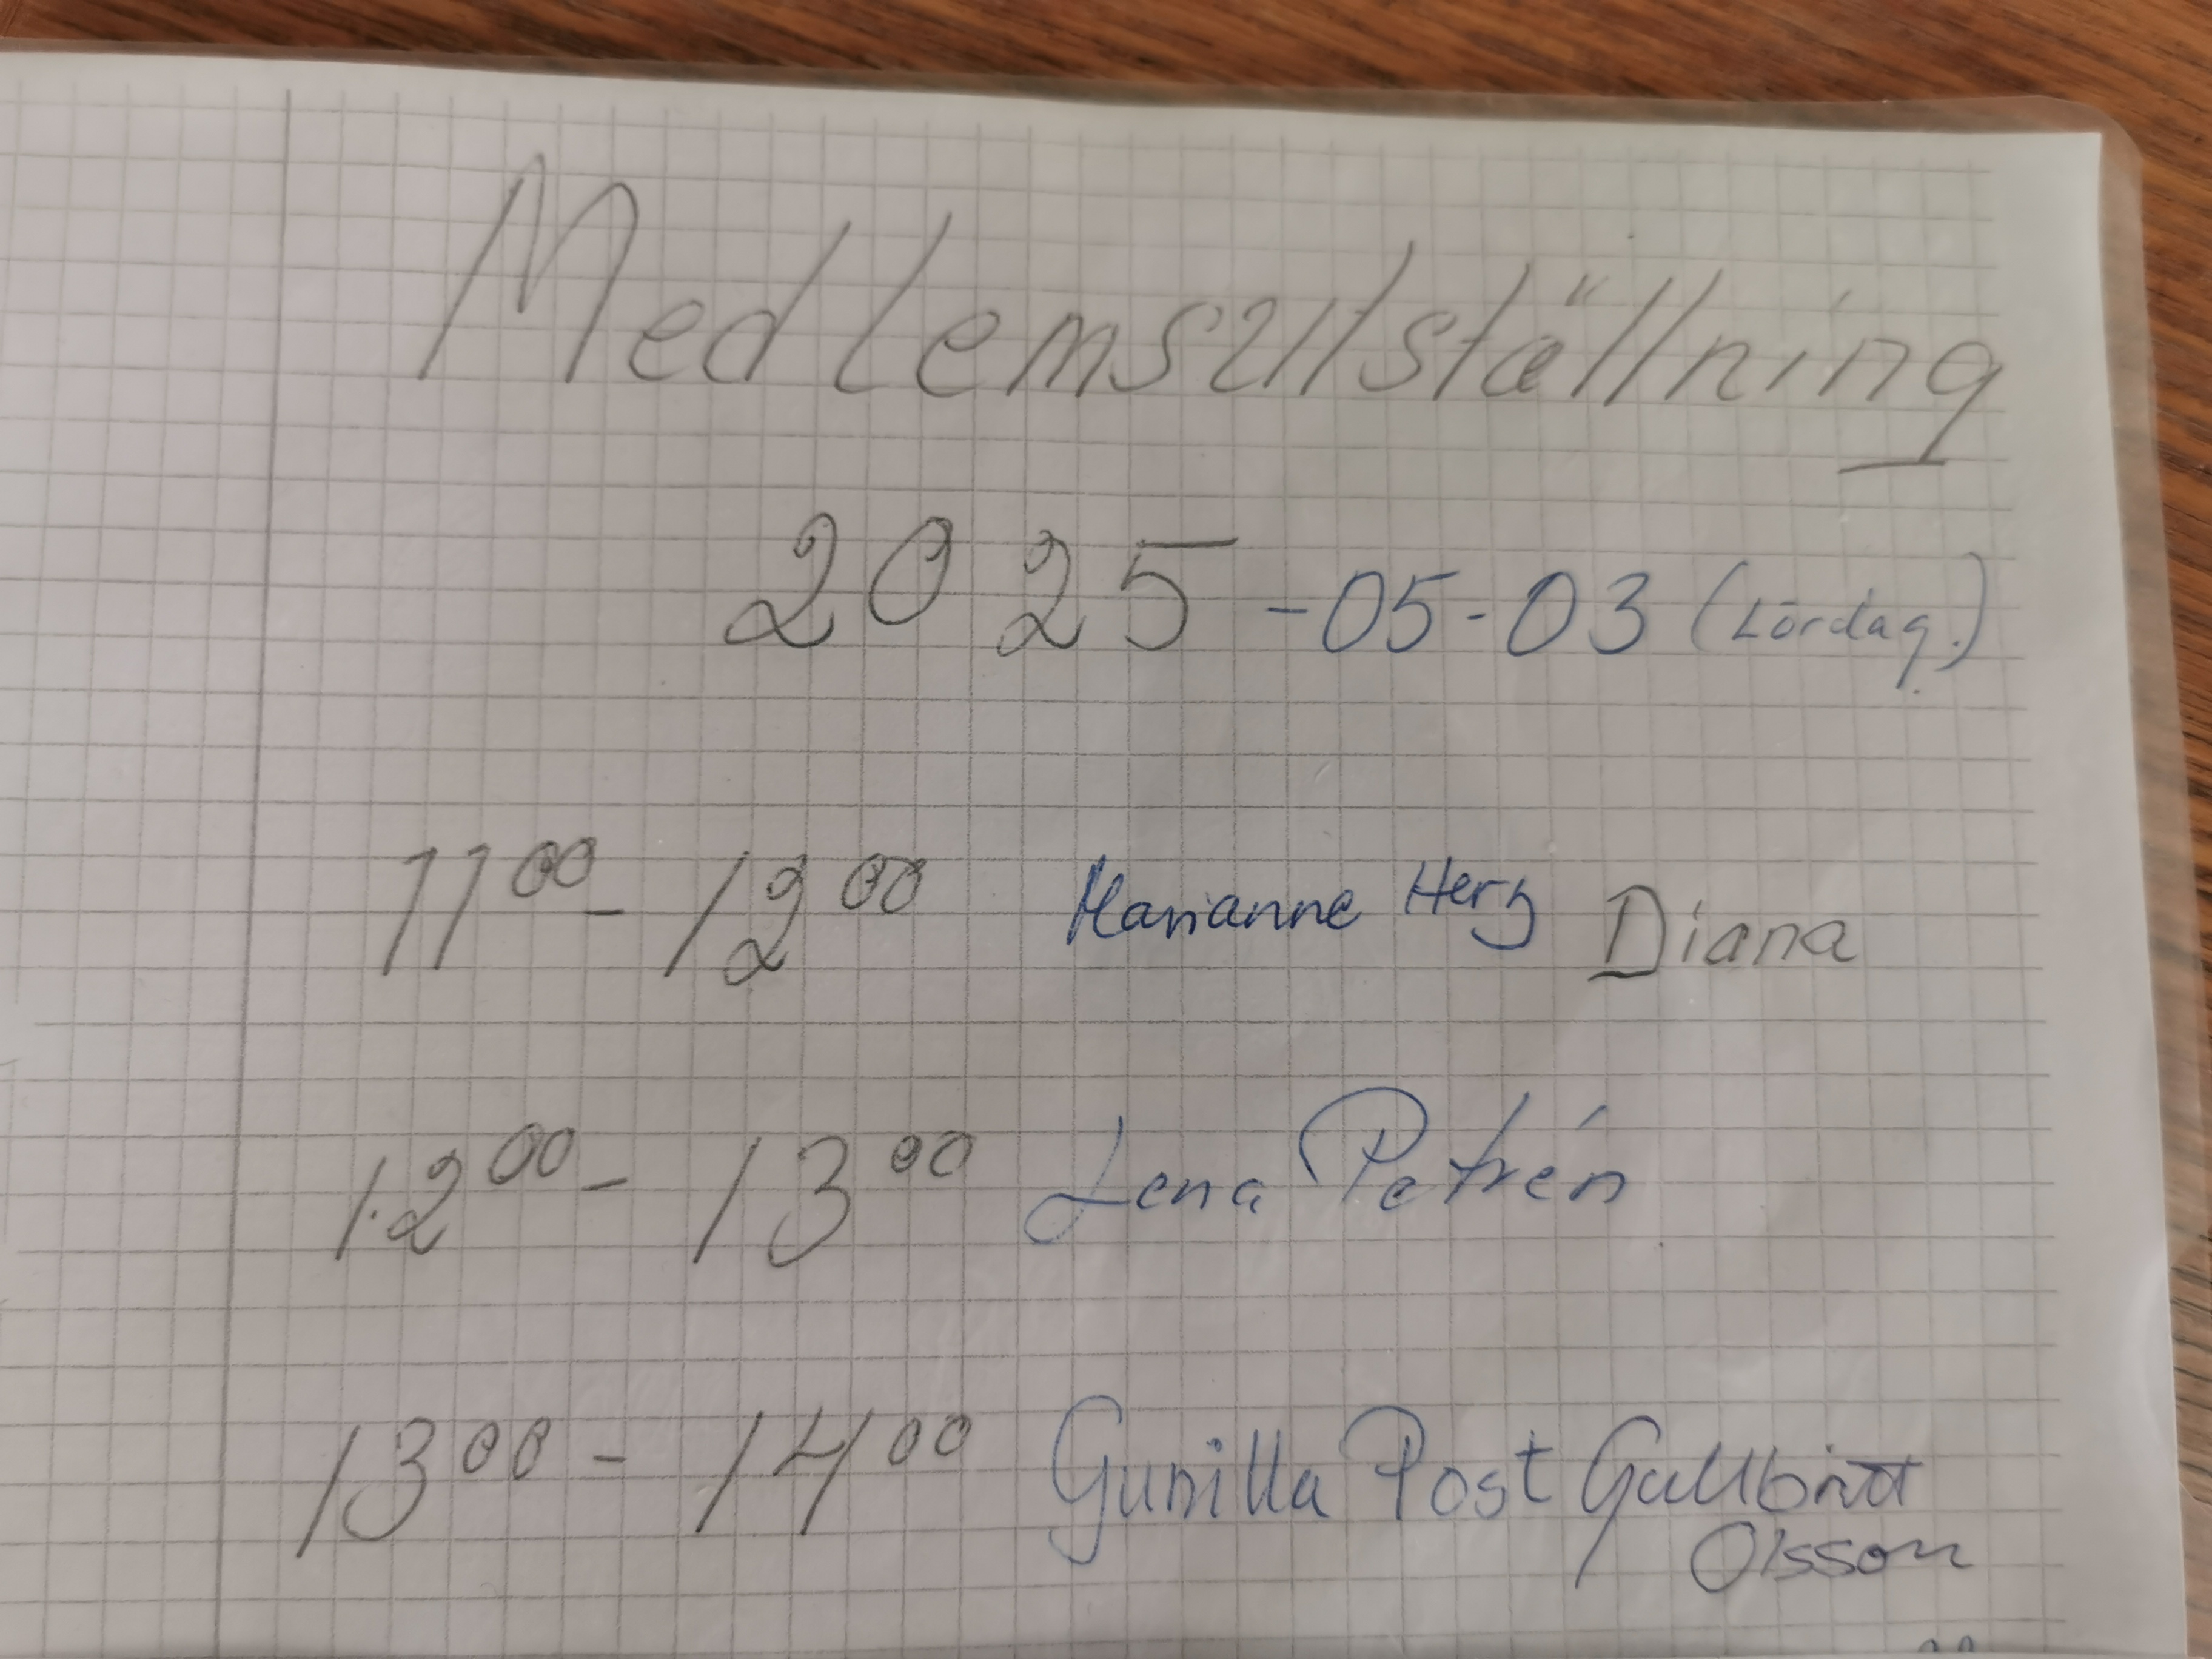 Medlemsutställning
2025-05-03 (Lördag.)
11⁰⁰ - 12⁰⁰ Marianne Herz Diana
12⁰⁰ - 13⁰⁰ Lena Petrén
13⁰⁰ - 14⁰⁰ Gunilla Post Gullbritt
Olsson